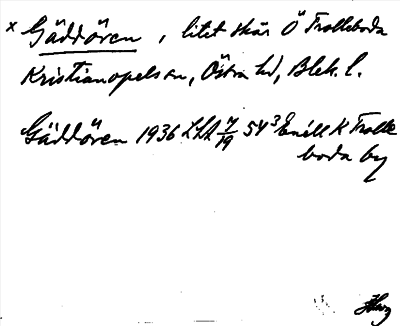 x Gäddören, litet skär Ö Trolleboda
Kristianopels sn, Östra hd, Blek. l.
Gäddören 1936 LSA 7/19 54³ Enskill K Trolle
boda by